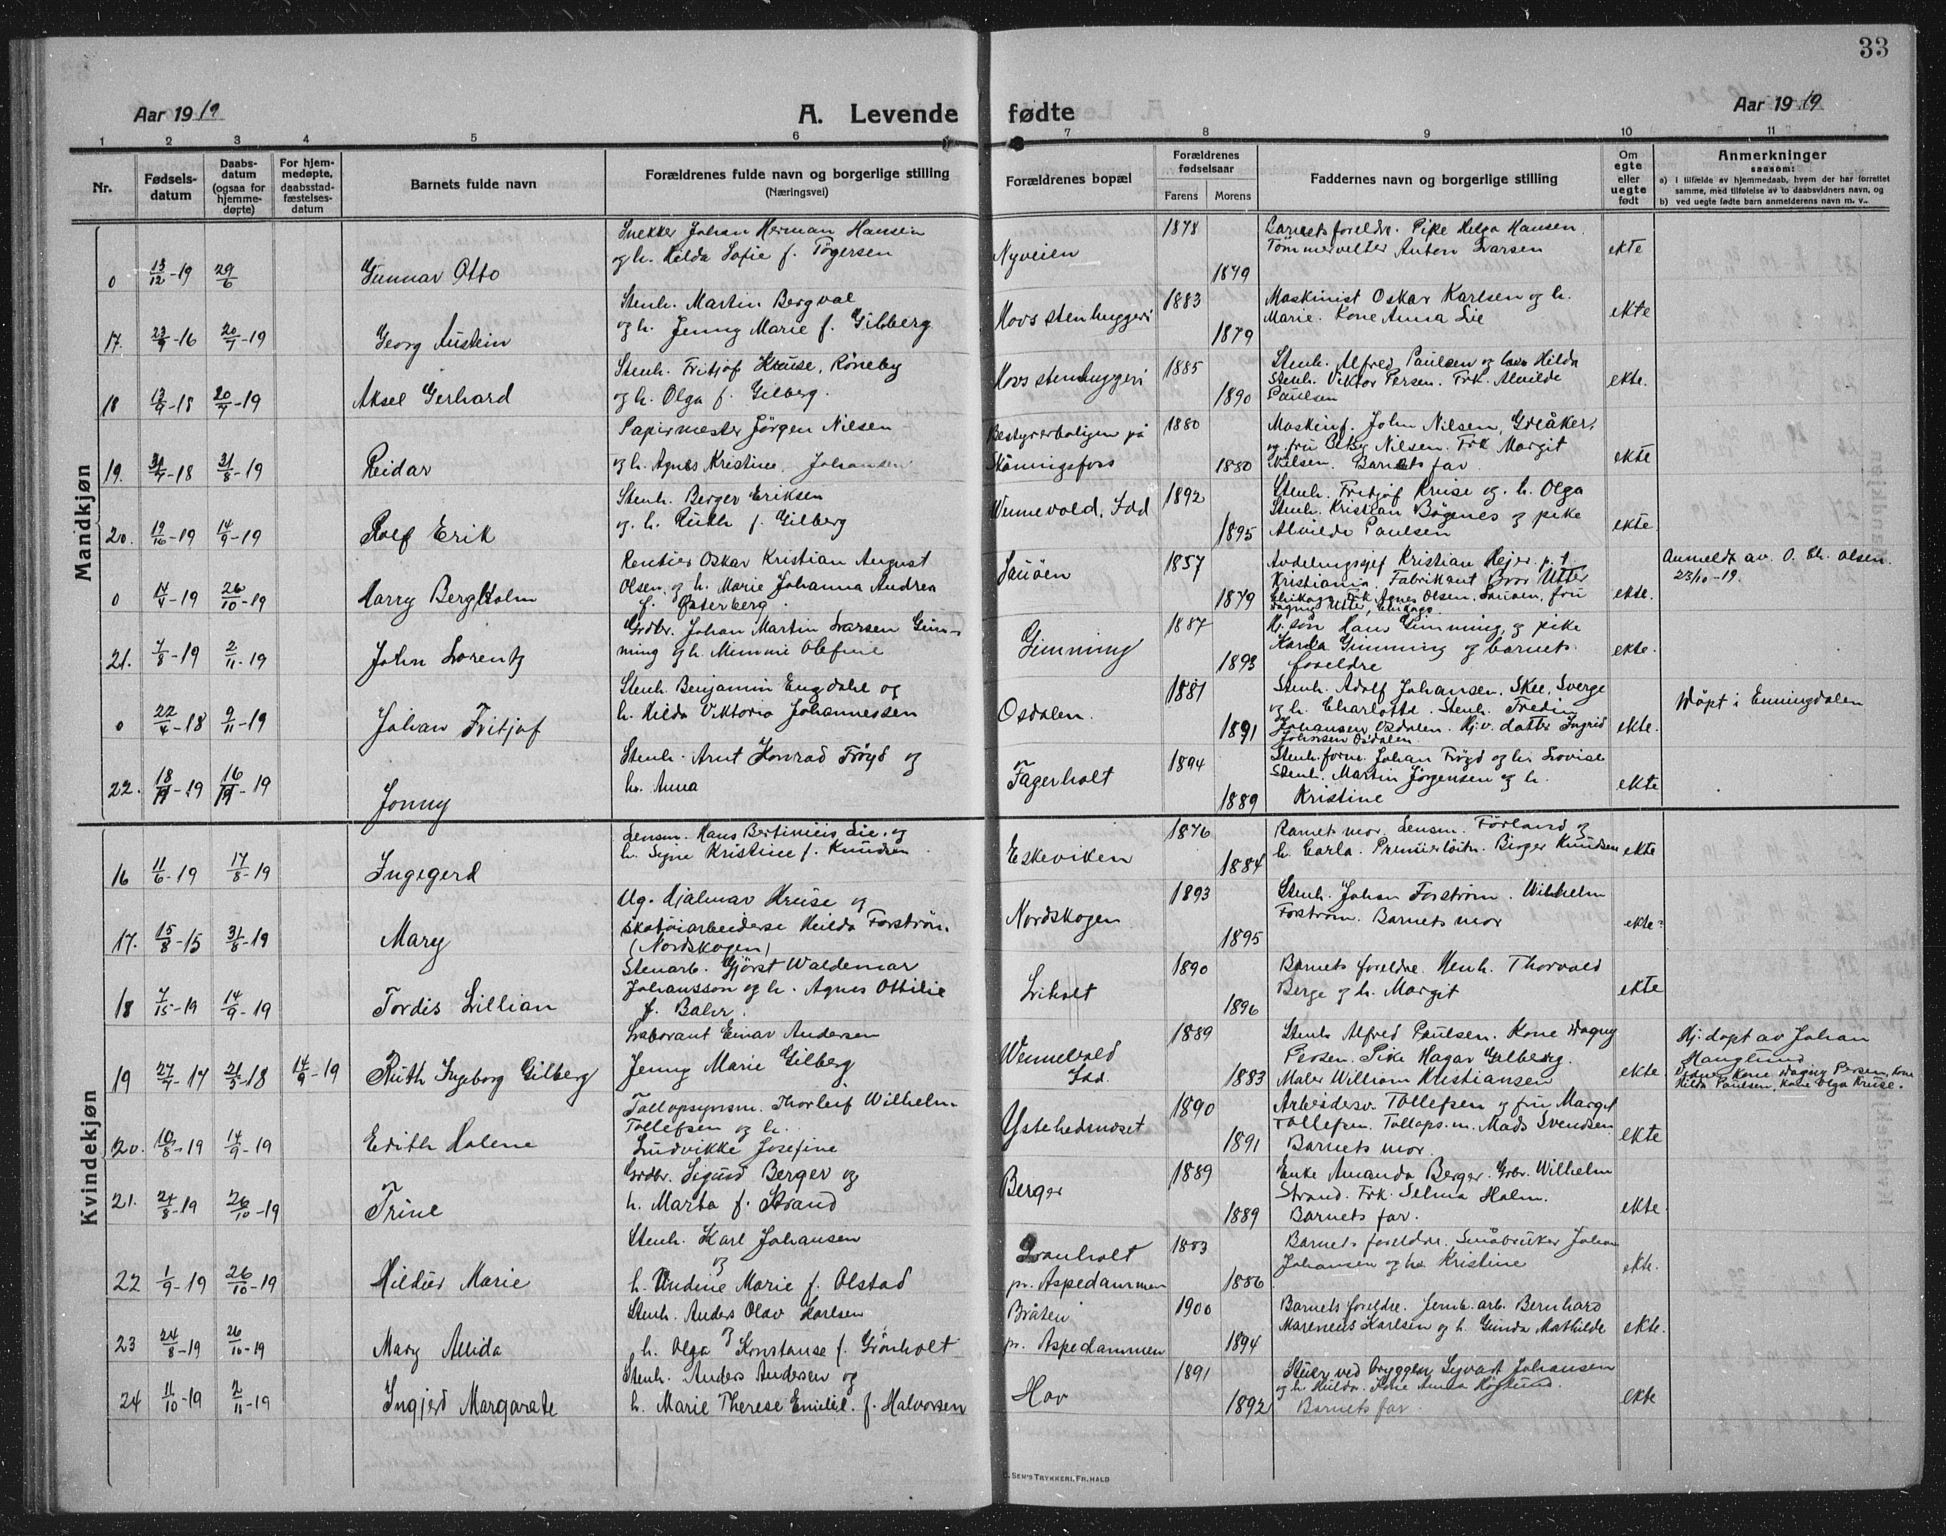 33
Aar 1919
A. Levende fødte
Aar 1919
1 2 3 4 5 6 7 8 9 10 11
Nr.
Fødsels-
datum
Daabs-
datum
(ogsaa for
hjemme-
døpte)
For hjem-
medøpte,
daabsstad-
fæstelses-
datum
Barnets fulde navn
Forældrenes fulde navn og borgerlige stilling
(Næringsvei)
Forældrenes bopæl
Forældrenes
fødselsaar
Farens Morens
Faddernes navn og borgerlige stilling
Om
egte
eller
uegte
født
Anmerkninger
saasom:
a) I tilfælde av hjemmedaab, hvem der har forrettet
samme, med tilføielse av to daabsvidners navn, og
b) ved uegte fødte barn anmelderens navn m. v.
Mandkjøn
Snekker Johan Herman Hansen
og h. Hilda Sofie f. Tøgersen
0 13/12-19 29/6 Gunnar Otto
Nyveien 1878 1879
Barnets foreldre. Pike Helga Hansen.
Tømmervelter Anton Larsen
ekte
Stenh. Martin Bergval
og h. Jenny Marie f. Gilberg
17. 23/9-16 20/7-19 Georg
Hovs stenhuggeri 1883 1879
Maskinist Oskar Karlsen og h.
Marie. Kone Anna Lie
ekte
Stenh. Fritjof Kruse, Røneby
og h. Olga f. Gilberg.
18 13/9-18 20/7-19 Aksel Gerhard
Hovs stenhuggeri 1885 1890
Stenh. Alfred Paulsen og Hilda
Stenh. Viktor Persen. Frk. Alvilde
Paulsen
ekte.
Papirmester Jørgen Nilsen
og h. Agnes Kristine, Johansen
19. 31/7-18 31/8-19 Reidar
Bestyrerboligen på
Skåningsfoss 1880 1880
Maskinf. John Nilsen, Greåker,
og fru Nilsen. Frk Margit
Nilsen. Barnets far.
ekte
Stenh. Berger Eriksen
og h. Ruth f. Gilberg
20. 12/16-19 14/9-19 Rolf Erik
Wennevold, Idd 1892 1895
Stenh. Fritjof Kruse og h. Olga
Stenh. Kristian Bøgenes og pike
Alvilde Paulsen
ekte
Rentier Oskar Kristian August
Olsen og h. Marie Johanna Andrea
f. Østerberg.
0 14/4-19 26/10-19 Harry Bergholm
Sauøen 1857 1879
Avdelingssjef Kristian Hejer p.t
Kristiania. Fabrikant Bror Utter
Frk Agnes Olsen, Sauøen, fru
Dagny Utter,
ekte.
Anmeldt av O. Chr. Olsen.
23/10-19.
Grdbr. Johan Martin Larsen Gim-
ming og h. Mimmi Olefine
21. 7/8-19 2/11-19 John Lorentz
Gimming 1887 1893
Hj. søn Hans Gimming og pike
Karda Gimming og barnets
foreldre
ekte.
Stenh. Benjamin Engdahl og
h. Hilda Viktoria Johannessen
0 22/4-18 9/11-19 Johan Fritjof
Osdalen. 1881 1891
Stenh. Adolf Johansen. Skee, Sverge
og h. Charlotte. Stenh. Fredin
Johansen Osdalen. Hj.v. datter Ingrid
Johansen Osdalen.
ekte.
Døpt i Enningdalen
Stenh. Arnt Konrad Frøyd og
h. Anna
22. 18/9-19 16/11-19 Jonny
Fagerholt 1894 1889
Stenh.form. Johan Frøyd og h. Lovise
Stenh. Martin Jørgensen og h.
Kristine
ekte
Kvindekjøn
Lensm. Hans Bertinius Lie og
h. Signe Kristine f. Knudsen
16 11/6-19 17/8-19 Ingegerd
Eskeviken 1876 1884
Barnets mor. Lensm. Førland og
h. Carla. Premierløitn. Birger Knudsen
ekte
Ug. Hjalmar Kruse og
skotøiarbeiderse Hilda Forstrøm.
(Nordskogen)
17. 15/8-15 31/8-19 Mary
Nordskogen 1893 1895
Stenh. Johan Forstrøm. Wilhelm
Forstrøm. Barnets mor
ekte?
Stenarb. Gjørst Waldemar
Johansson og h. Agnes Ottilie
f. Bahr.
18 7/15-19 14/9-19 Tordis Lillian
Liholt 1890 1896
Barnets foreldre. Stenh. Thorvald
Berge og h. Margit
ekte
Laborant Einar Andersen
Jenny Marie Gilberg
19 27/7-17 21/5-18 14/9-19 Ruth Ingeborg Gilberg
Wennevold
Idd 1889 1883
Stenh Alfred Paulsen. Kone Dagny
Persen. Pike Hagar Gilberg.
Maler William Kristiansen
ekte
Hj.døpt av Johan
Hauglund
Vidner Kone Dagny Persen, Kone
Hilda Paulsen, Kone Olga Kruse.
Tollopsynsm. Thorleif Wilhelm
Tollefsen og h.
Ludvikke Josefine
20. 10/8-19 14/9-19 Edith Halene
Ystehedsneset 1890 1891
Arbeidersv. Tollefsen og fru Margit
Tollefsen. Tollops.m. Mads Svendsen
Barnets mor.
ekte
Grdbr. Sigurd Berger og
h. Marta f. Strand
21. 24/8-19 26/10-19 Trine
Berger 1889 1889
Enke Amanda Berger. Grbr. Wilhelm
Strand. Frk. Selma Holm.
Barnets far.
ekte.
Stenh. Karl Johansen
og
h. Undine Marie f. Olstad
22 1/9-19 26/10-19 Hildur Marie
Granholt
pr. Aspedammen 1883 1886
Barnets foreldre. Småbruker Johan
Johansen og h. Kristine
ekte.
Stenh. Anders Olav Karlsen
og
h. Olga Konstanse f. Grønholt
23 24/8-19 26/10-19 Mary Alida
Bråten
pr. Aspedammen 1900 1894
Barnets foreldre. Jernb.arb. Bernhard
Mareneus Karlsen og h. Gunda Mathilde
ekte.
Stenh. Anders Andersen og
h. Marie Therese Emilie f. Halvorsen
24 11/10-19 2/11-19 Ingjerd Margarate
Hov 1891 1892
Stuer ved bryggen Sigvart Johansen
og h. Hulda. Kone Anna Høglund.
Barnets far.
ekte
SEM'S TRYKKERI, FR.HALD